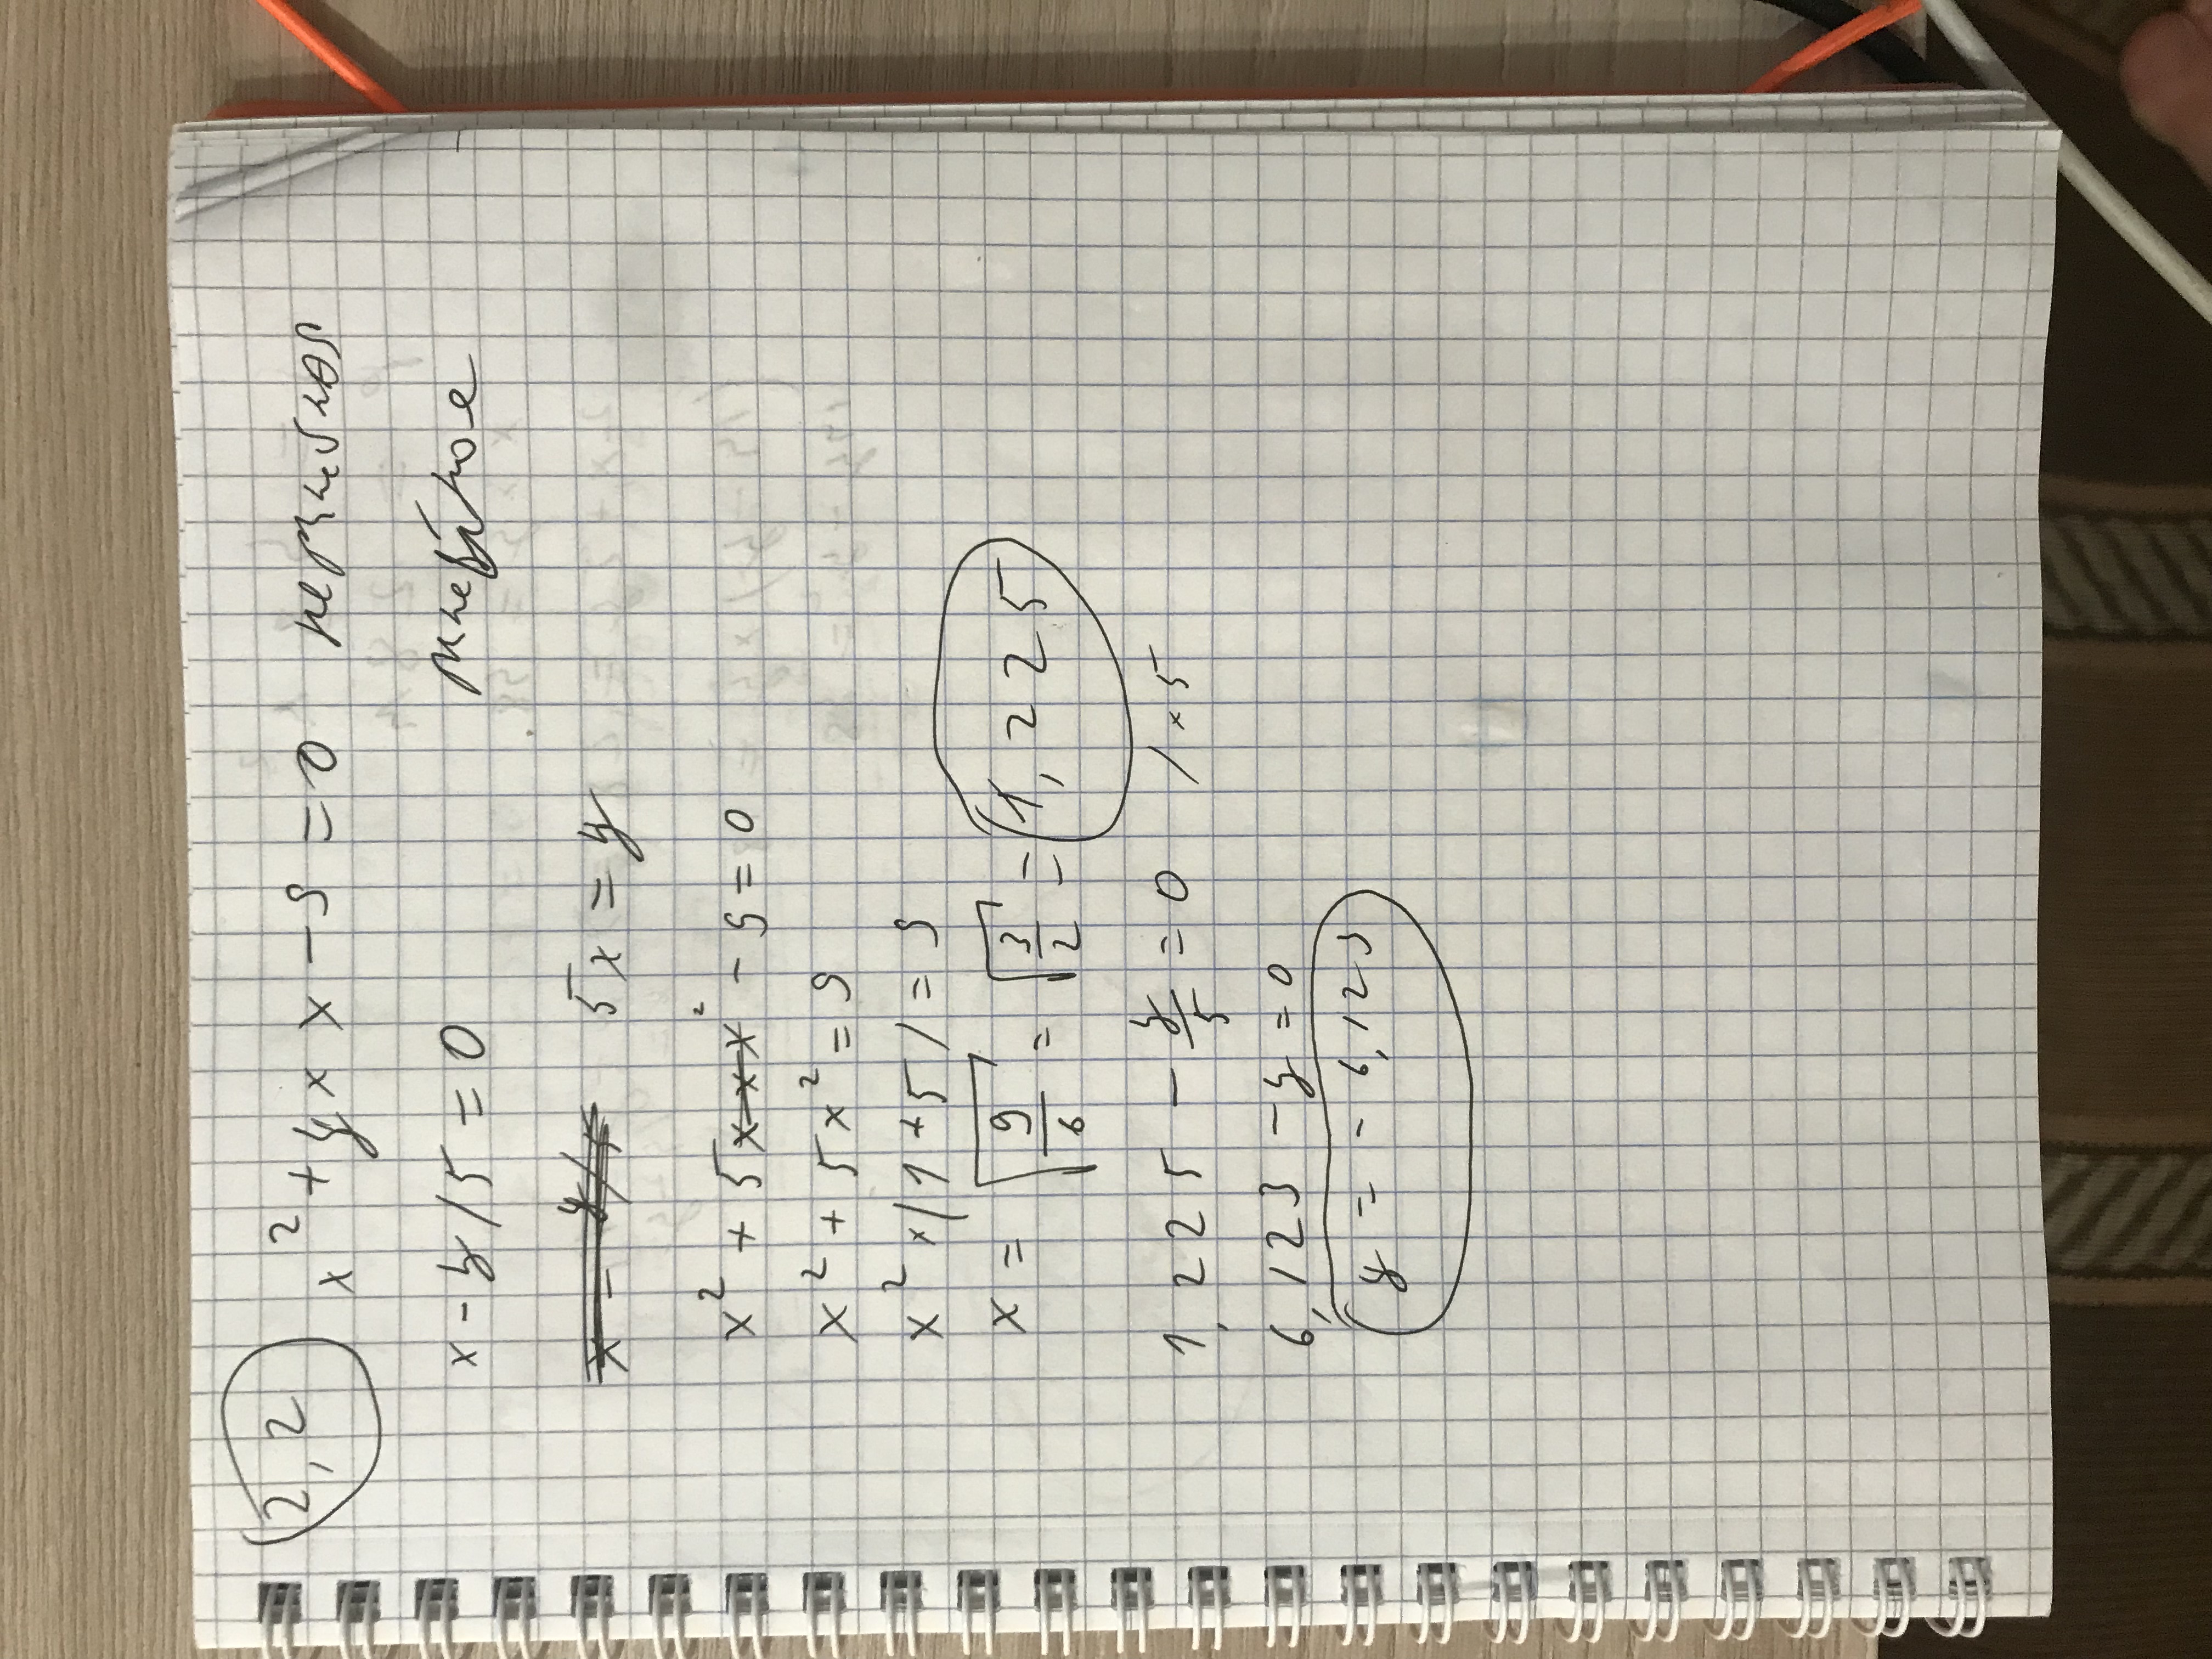 2,2 x² + y × x - 9 = 0 нелинейная
x - y / 5 = 0 линейное
x = y/5 5x = y
x² + 5x × x² - 9 = 0
x² + 5x² = 9
x² × (1 + 5) = 9
x = √(9/6) = √(3/2) = 1,225
1,225 - y/5 = 0 / × 5
6,123 - y = 0
y = - 6,123